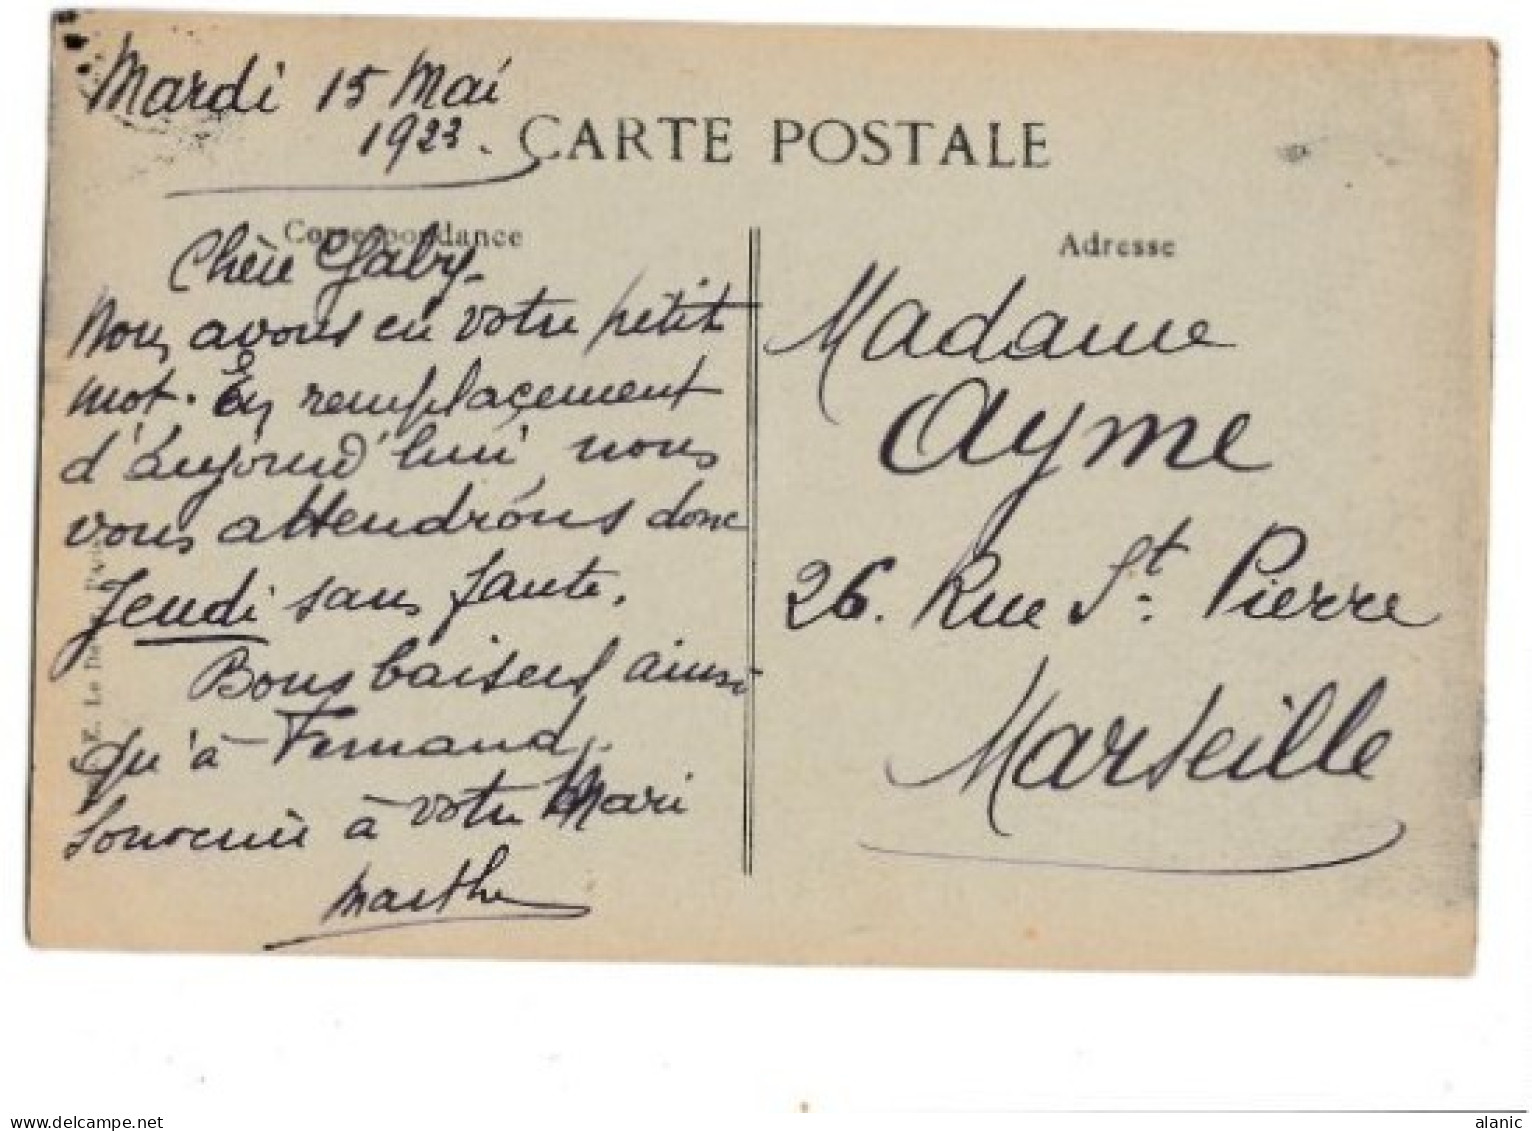 Mardi 15 Mai
1923.
CARTE POSTALE
Correspondance
Chère Gaby.
Nous avons eu votre petit
mot. En remplacement
d'aujourd'hui nous
vous attendrons donc
Jeudi sans faute.
Bons baisers ainsi
qu'à Fernand.
Souvenir à votre Mari
Marthe
Adresse
Madame
Ayme
26. Rue St. Pierre
Marseille
E. Le De
alanic